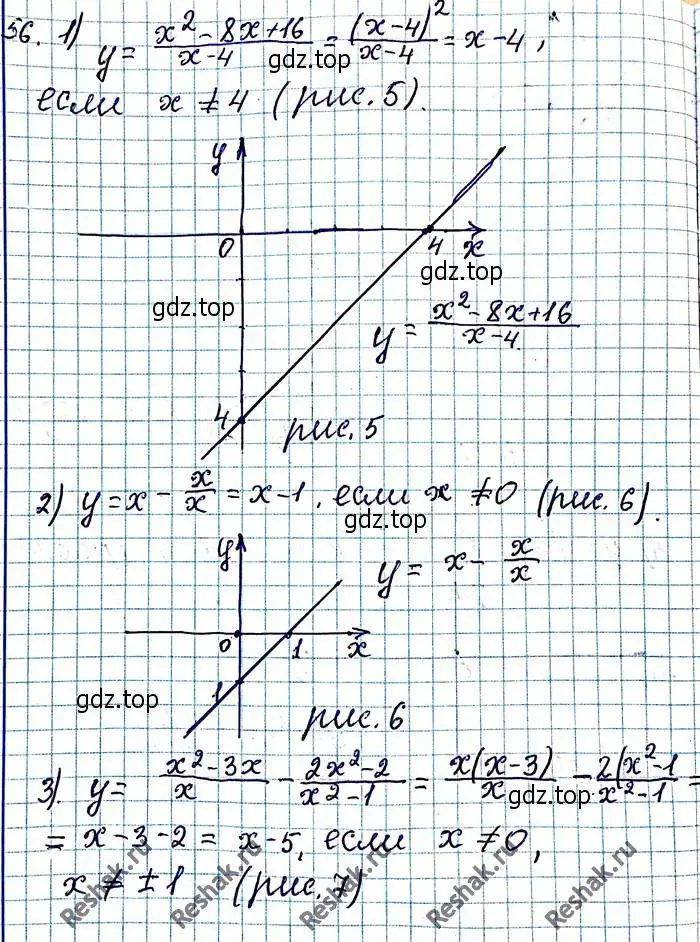 56. 1) y = (x² - 8x + 16)/(x - 4) = (x-4)²/(x-4) = x - 4,
gdz.top
если x ≠ 4 (рис. 5).
y
0
4
x
gdz.top
gdz.top
y = (x² - 8x + 16)/(x - 4)
4
рис. 5
2) y = x - x/x = x - 1, если x ≠ 0 (рис. 6).
gdz.top
y
y = x - x/x
0
1
x
1
gdz.top
рис. 6
3). y = (x² - 3x)/x - (2x² - 2)/(x² - 1) = x(x-3)/x - 2(x² - 1/(x² - 1 =
gdz.top
= x - 3 - 2 = x - 5, если x ≠ 0,
x ≠ ±1 (рис. 7)
Reshak.ru
Reshak.ru
Reshak.ru
Reshak.ru
Reshak.ru